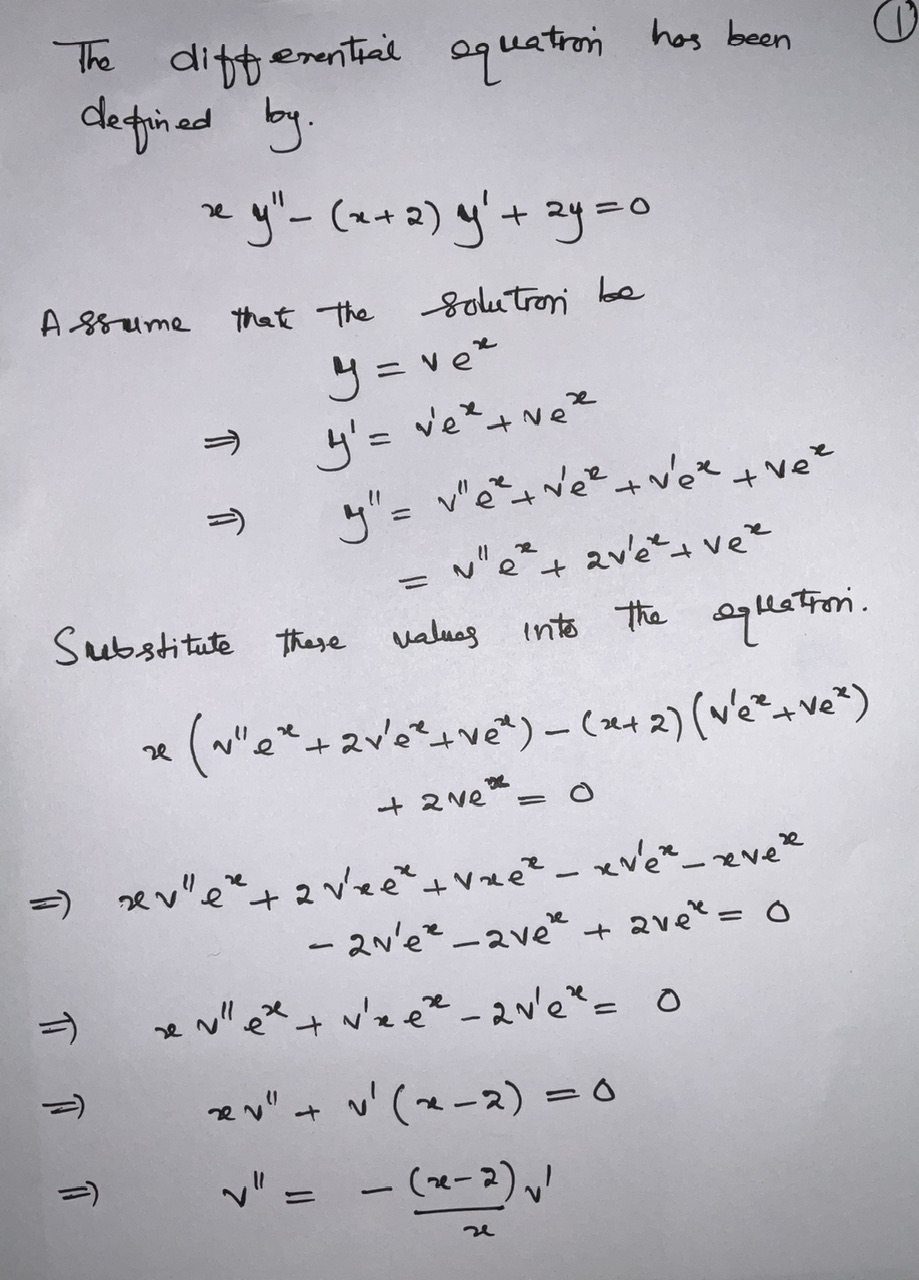 The differential equation has been ①
defined by.
x y'' - (x+2) y' + 2y = 0
Assume that the solution be
y = v eˣ
⇒ y' = v'eˣ + veˣ
⇒ y'' = v''eˣ + v'eˣ + v'eˣ + veˣ
= v''eˣ + 2v'eˣ + veˣ
Substitute these values into the equation.
x (v''eˣ + 2v'eˣ + veˣ) - (x+2) (v'eˣ + veˣ)
+ 2veˣ = 0
⇒ xv''eˣ + 2v'xeˣ + vxeˣ - xv'eˣ - xveˣ
- 2v'eˣ - 2veˣ + 2veˣ = 0
⇒ xv''eˣ + v'xeˣ - 2v'eˣ = 0
⇒ xv'' + v'(x-2) = 0
⇒ v'' = -(x-2)/x v'